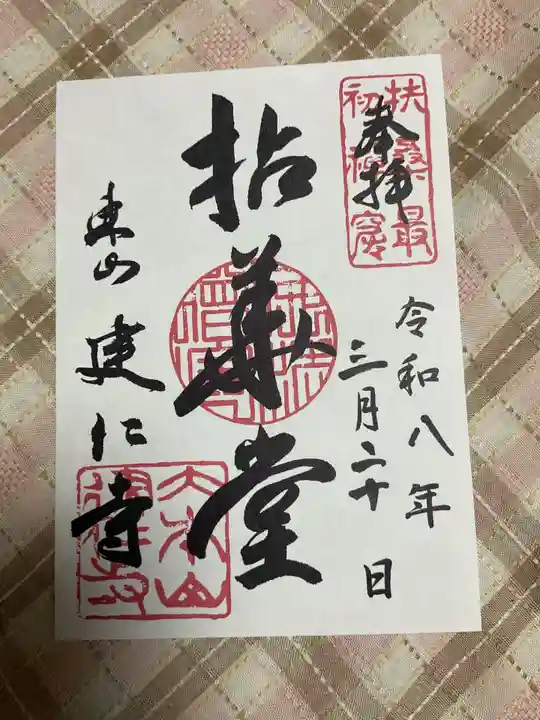 奉拝
扶桑最
初禅窟
令和八年
三月二十日
拈華堂
東山 建仁寺
大本山
建仁寺